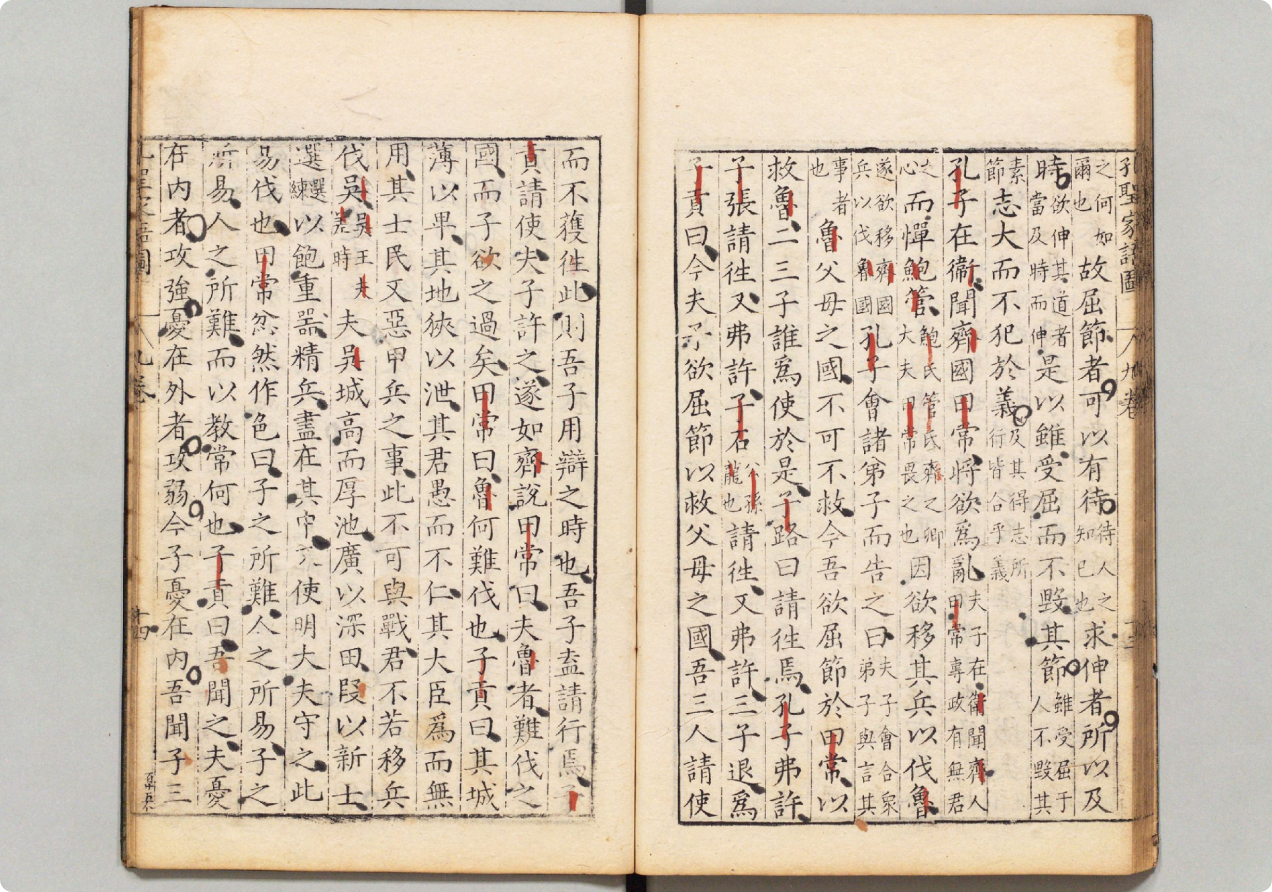 孔聖家語圖 九卷
之何如爾也故屈節者可以有待待人之知己也求伸者所以及
時欲伸其道者當及時而伸是以雖受屈而不毀其節雖受屈于人不毀其
素節志大而不犯於義及其得志所行皆合乎義
孔子在衞聞齊國田常將欲爲亂夫子在衞聞齊人田常專政有無君
之心而憚鮑管鮑氏管氏齊之卿大夫田常畏之也因欲移其兵以伐魯
遂欲移齊國兵以伐魯國孔子會諸弟子而告之曰夫子會合衆弟子與言其
事者也魯父母之國不可不救今吾欲屈節於田常以
救魯二三子誰爲使於是子路曰請徃焉孔子弗許
子張請徃又弗許子石公孫龍也請徃又弗許三子退爲
子貢曰今夫子欲屈節以救父母之國吾三人請使
而不獲徃此則吾子用辯之時也吾子盍請行焉子
貢請使夫子許之遂如齊說田常曰夫魯者難伐之
國而子欲之過矣田常曰魯何難伐也子貢曰其城
薄以卑其地狹以泄其君愚而不仁其大臣爲而無
用其士民又惡甲兵之事此不可與戰君不若移兵
伐吳吳王夫差時夫吳城高而厚池廣以深田段以新士
選選練以飽重噐精兵盡在其中又使明大夫守之此
易伐也田常忿然作色曰子之所難人之所易子之
所易人之所難而以教常何也子貢曰吾聞之夫憂
在內者攻強憂在外者攻弱今子憂在內吾聞子三
孔聖家語圖 九卷 十四